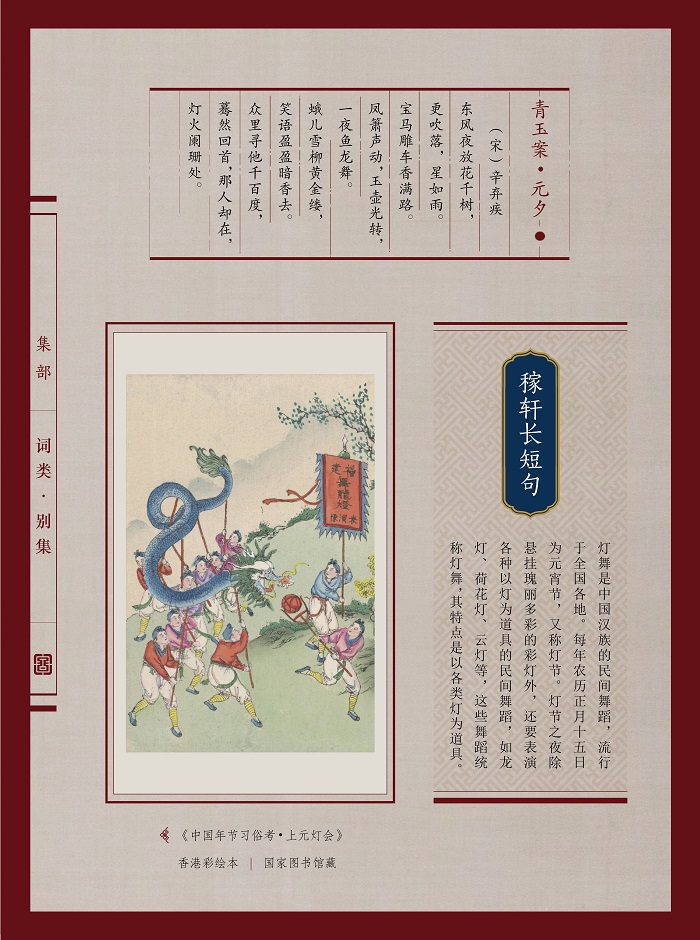 青玉案·元夕
（宋）辛弃疾
东风夜放花千树，
更吹落，星如雨。
宝马雕车香满路。
凤箫声动，玉壶光转，
一夜鱼龙舞。
蛾儿雪柳黄金缕，
笑语盈盈暗香去。
众里寻他千百度，
蓦然回首，那人却在，
灯火阑珊处。
集部
词类·别集
稼轩长短句
灯舞是中国汉族的民间舞蹈，流行
于全国各地。每年农历正月十五日
为元宵节，又称灯节。灯节之夜除
悬挂瑰丽多彩的彩灯外，还要表演
各种以灯为道具的民间舞蹈，如龙
灯、荷花灯、云灯等，这些舞蹈统
称灯舞，其特点是以各类灯为道具。
《中国年节习俗考·上元灯会》
香港彩绘本 | 国家图书馆藏